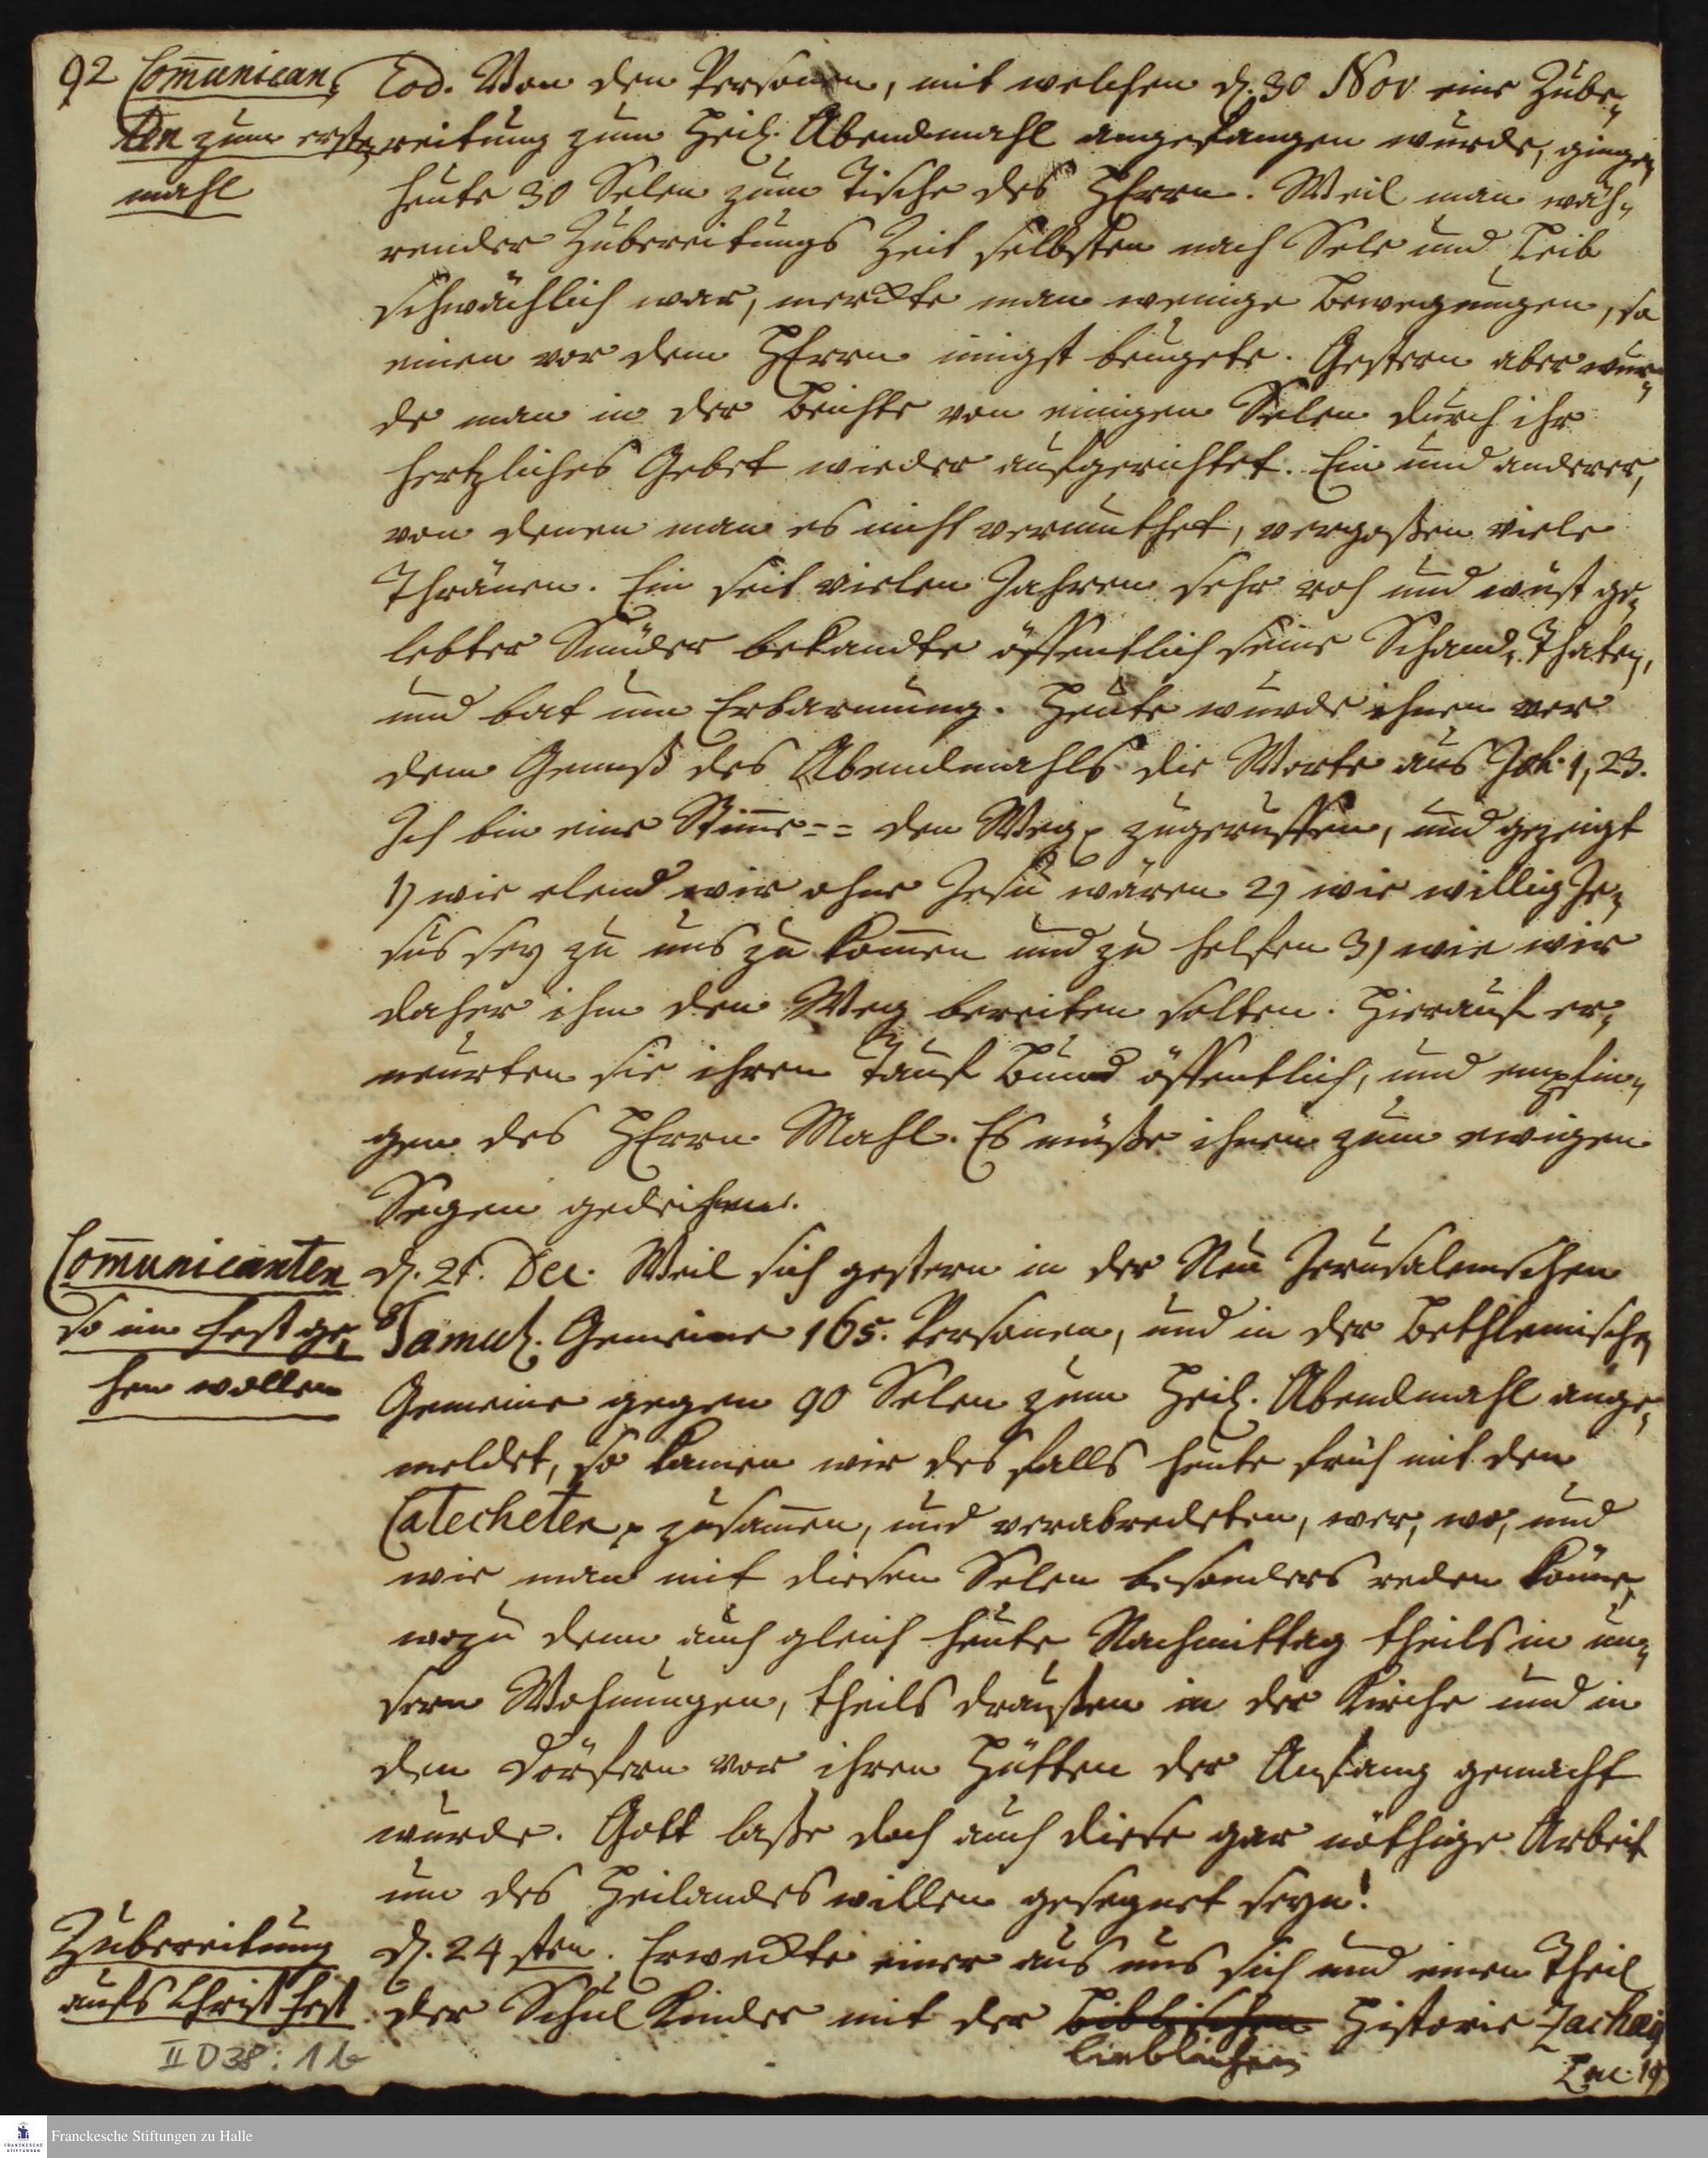 92
Com̄unican,
ten zum ersten
mahl
Eod. Von den Personen, mit welchen d. 30 Nov eine Zube,,
reitung zum Heil. Abendmahl angefangen wurde, gingen
heute 30 Selen zum Tische des HErrn. Weil man wäh,,
render Zubereitungs Zeit selbsten nach Sele und Leib
schwächlich war, merckte man wenige Bewegungen, so
einen vor dem HErrn innigst beugete. Gestern aber wur,,
de man in der Beichte von einigen Selen durch ihr
hertzliches Gebet wieder aufgerichtet. Ein und anderer,
von denen man es nicht vermuthet, vergoßen viele
Thränen. Ein seit vielen Jahren sehr roh und wüst ge,,
lebter Sünder bekandte öffentlich seine Schand, Thaten,
und bat um Erbarmung. Heute wurde ihnen vor
dem Genuß des Abendmahls die Worte aus Joh. 1, 23.
Ich bin eine Stim̄e == den Weg zugeruffen, und gezeigt
1) wie elend wir ohne Jesu wären 2) wie willig Je,,
sus sey zu uns zu kom̄en und zu helfen 3) wie wir
daher ihm den Weg bereiten solten. Hierauf er,,
neurten sie ihren Tauf Bund öffentlich, und empfin,,
gen des HErrn Mahl. Es müße ihnen zum ewigen
Segen gedeihen.
Com̄unicanten
so im Fest ge,,
hen wollen
d. 21. Dec. Weil sich gestern in der Neu Jerusalemschen
Tamul. Gemeine 165. Personen, und in der Bethlemischen
Gemeine gegen 90 Selen zum Heil. Abendmahl ange,,
meldet, so kamen wir desfalls heute früh mit den
Catecheten zusam̄en, und verabredeten, wer, wo, und
wie man mit diesen Selen besonders reden könne,
wozu denn auch gleich heute Nachmittag theils in un,,
sern Wohnungen, theils draußen in der Kirche und in
den Dörfern vor ihren Hütten der Anfang gemacht
wurde. Gott laße doch auch diese gar nöthige Arbeit
um des Heilandes willen gesegnet seyn!
Zubereitung
aufs Christ Fest
d. 24 sten. Erweckte einer aus uns sich und einen Theil
der Schul Kinder mit der Biblischen Historie Zachäi
lieblichen
Luc. 19
II D 38: 16
Franckesche Stiftungen zu Halle